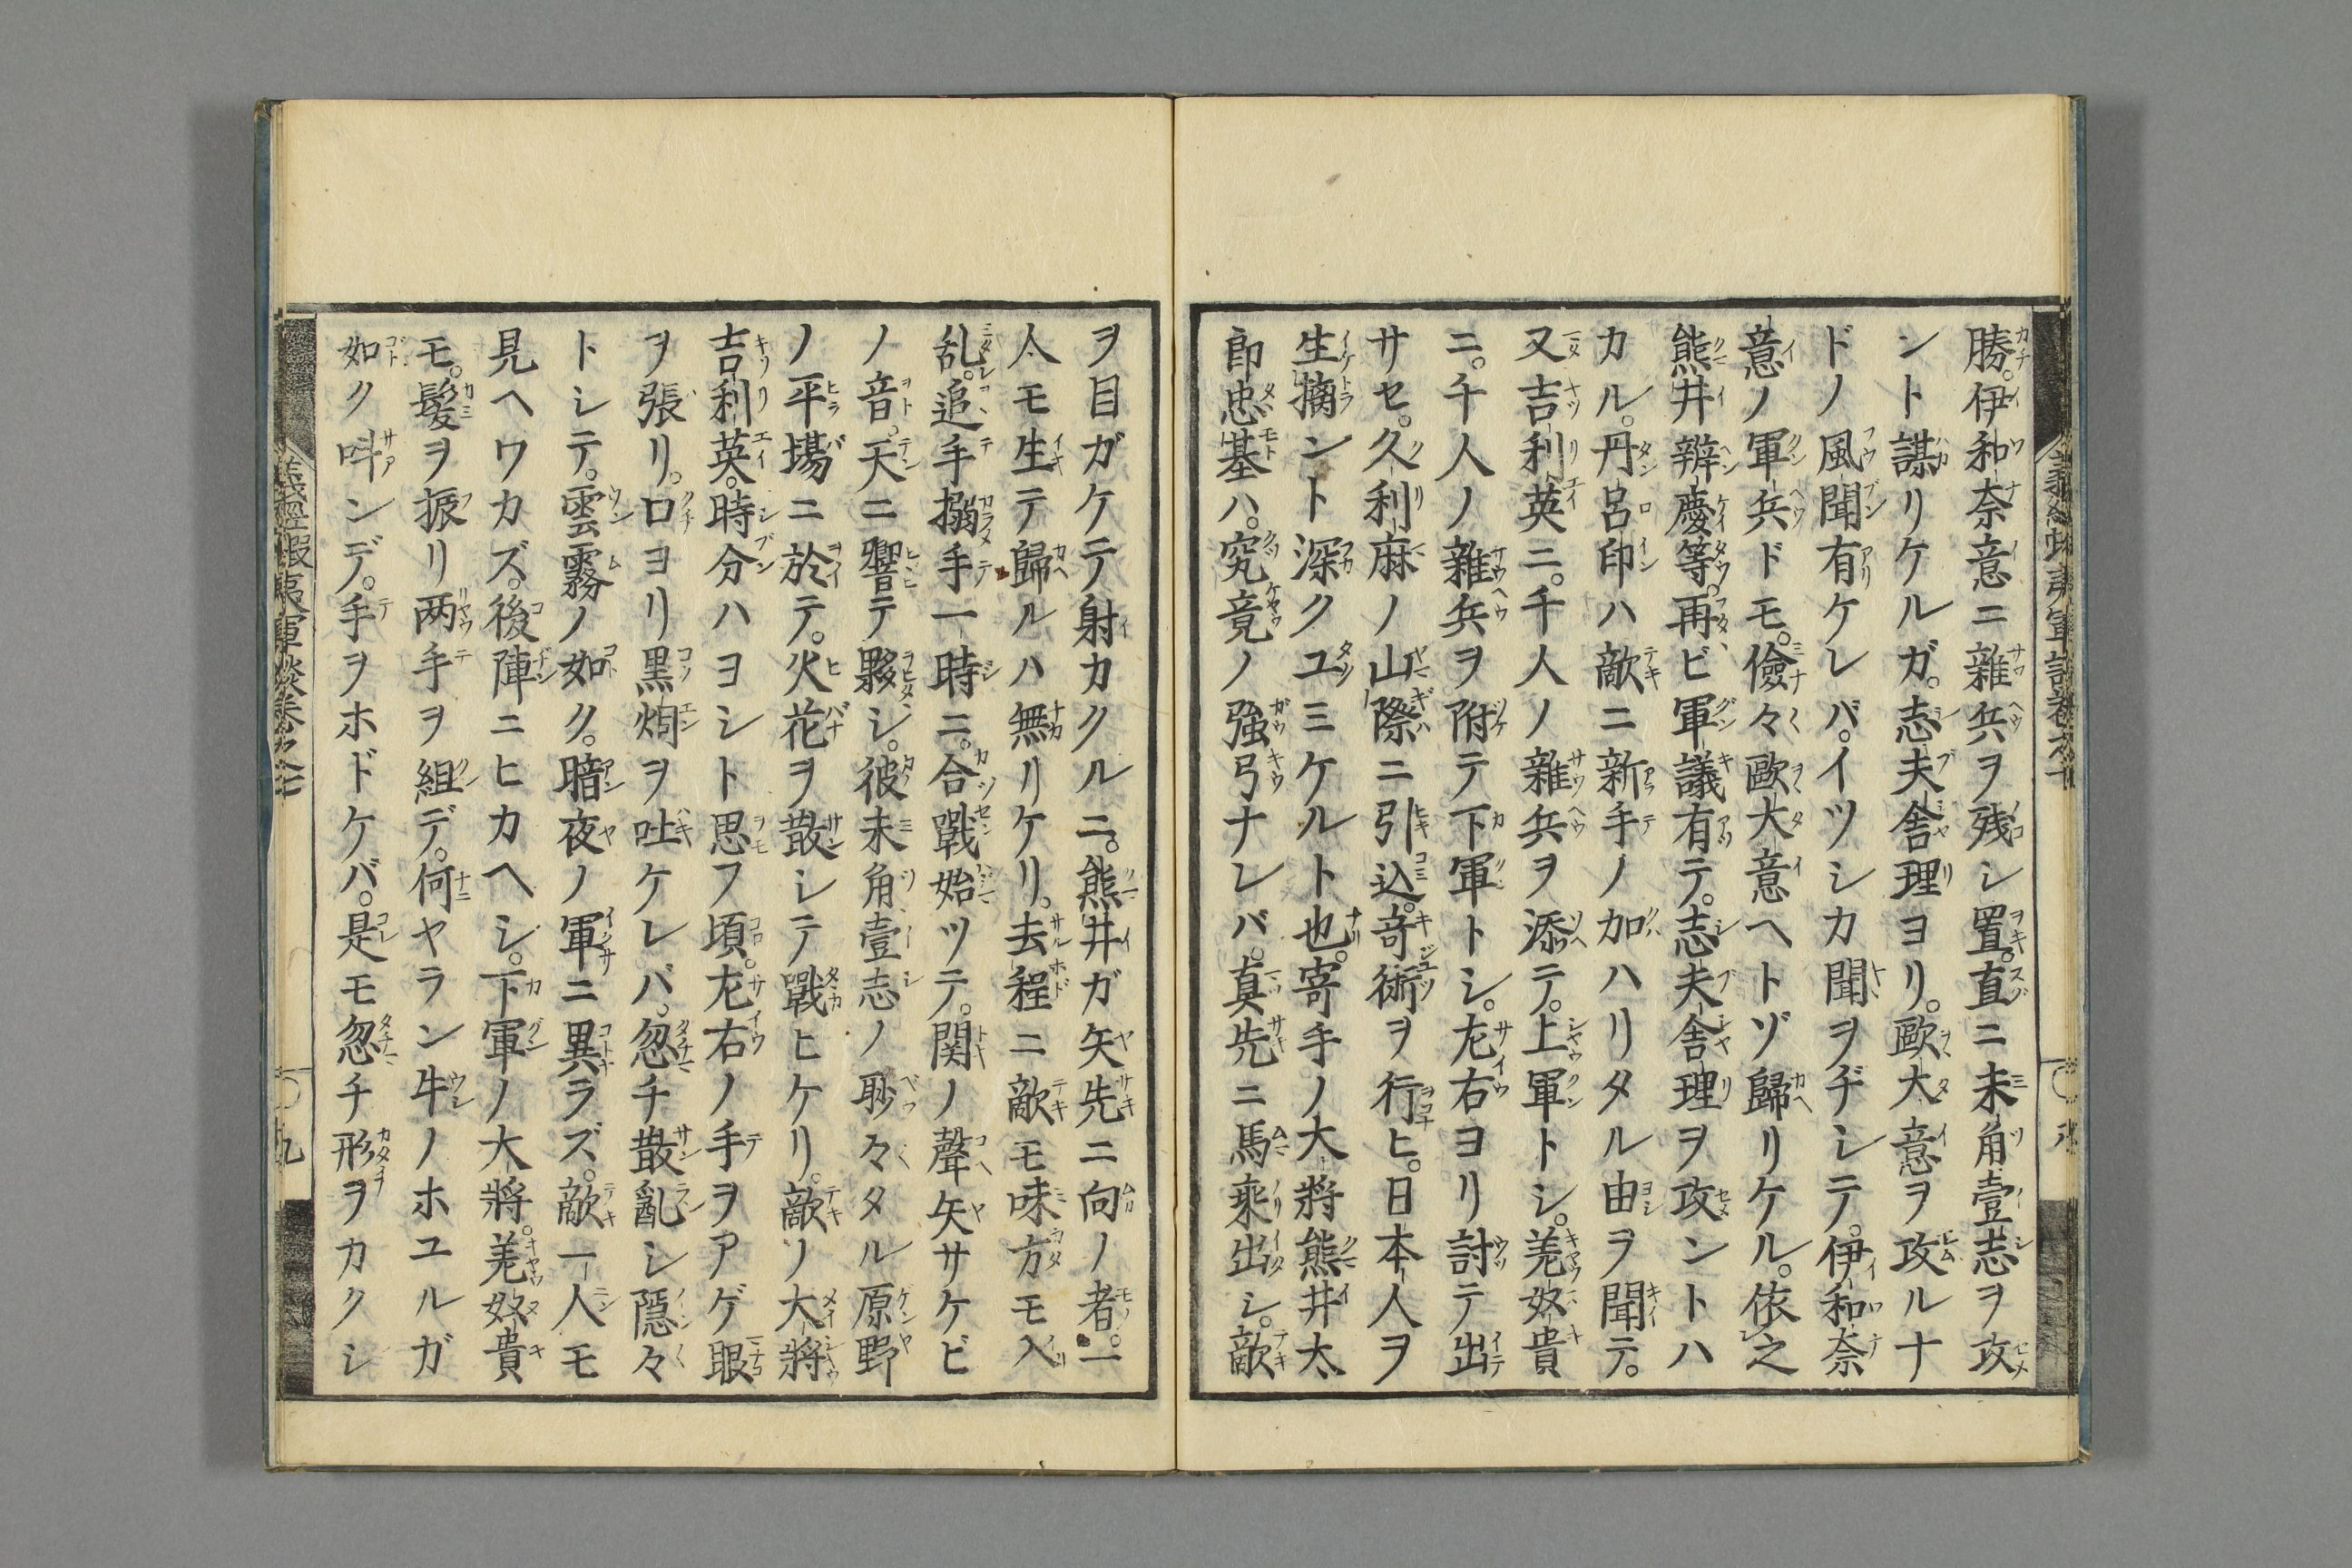 勝。伊和奈意ニ雜兵ヲ残シ置。直ニ未角壹志ヲ攻
ント謀リケルガ。志夫舎理ヨリ。歐大意ヲ攻ルナ
ドノ風聞有ケレバ。イツシカ聞ヲヂシテ。伊和奈
意ノ軍兵ドモ。儉々歐大意ヘトゾ歸リケル。依之
熊井辨慶等。再ビ軍議有テ。志夫舎理ヲ攻ントハ
カル。丹呂印ハ敵ニ新手ノ加ハリタル由ヲ聞テ。
又吉利英ニ。千人ノ雜兵ヲ添テ。上軍トシ。羌奴貴
ニ。千人ノ雜兵ヲ附テ下軍トシ。左右ヨリ討テ出
サセ。久利麻ノ山際ニ引込。奇術ヲ行ヒ。日本人ヲ
生擒ント深クユミケルト也。寄手ノ大將熊井太
郎忠基ハ。究竟ノ強弓ナレバ。真先ニ馬乘出シ。敵
ヲ目ガケテ射カクルニ。熊井ガ矢先ニ向ノ者。一
人モ生テ歸ルハ無リケリ。去程ニ敵モ味方モ入
乱。追手搦手一時ニ。合戰始ツテ。関ノ聲矢サケビ
ノ音。天ニ響テ夥シ。彼未角壹志ノ眇々タル原野
ノ平場ニ於テ。火花ヲ散シテ戰ヒケリ。敵ノ大將
吉利英。時分ハヨシト思フ頃。左右ノ手ヲアゲ眼
ヲ張リ。口ヨリ黒烟ヲ吐ケレバ。忽チ散亂シ隱々
トシテ。雲霧ノ如ク。暗夜ノ軍ニ異ラズ。敵一人モ
見ヘワカズ。後陣ニヒカヘシ。下軍ノ大將。羌奴貴
モ。髪ヲ振リ両手ヲ組デ。何ヤラン牛ノホユルガ
如ク呌ンデ。手ヲホドケバ。是モ忽チ形ヲカクシ
義經蝦夷軍談卷之七
九